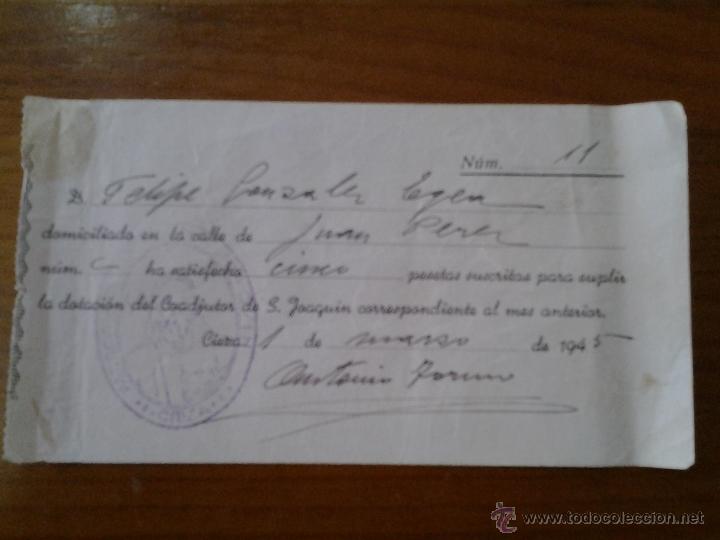 Núm. 11
D. Felipe Gonzalez Egea
domiciliado en la calle de Juan Perez
núm. ha satisfecho cinco pesetas suscritas para suplir
la dotación del Coadjutor de S. Joaquín correspondiente al mes anterior.
Cieza 1 de marzo de 1945
Antonio
www.todocoleccion.net